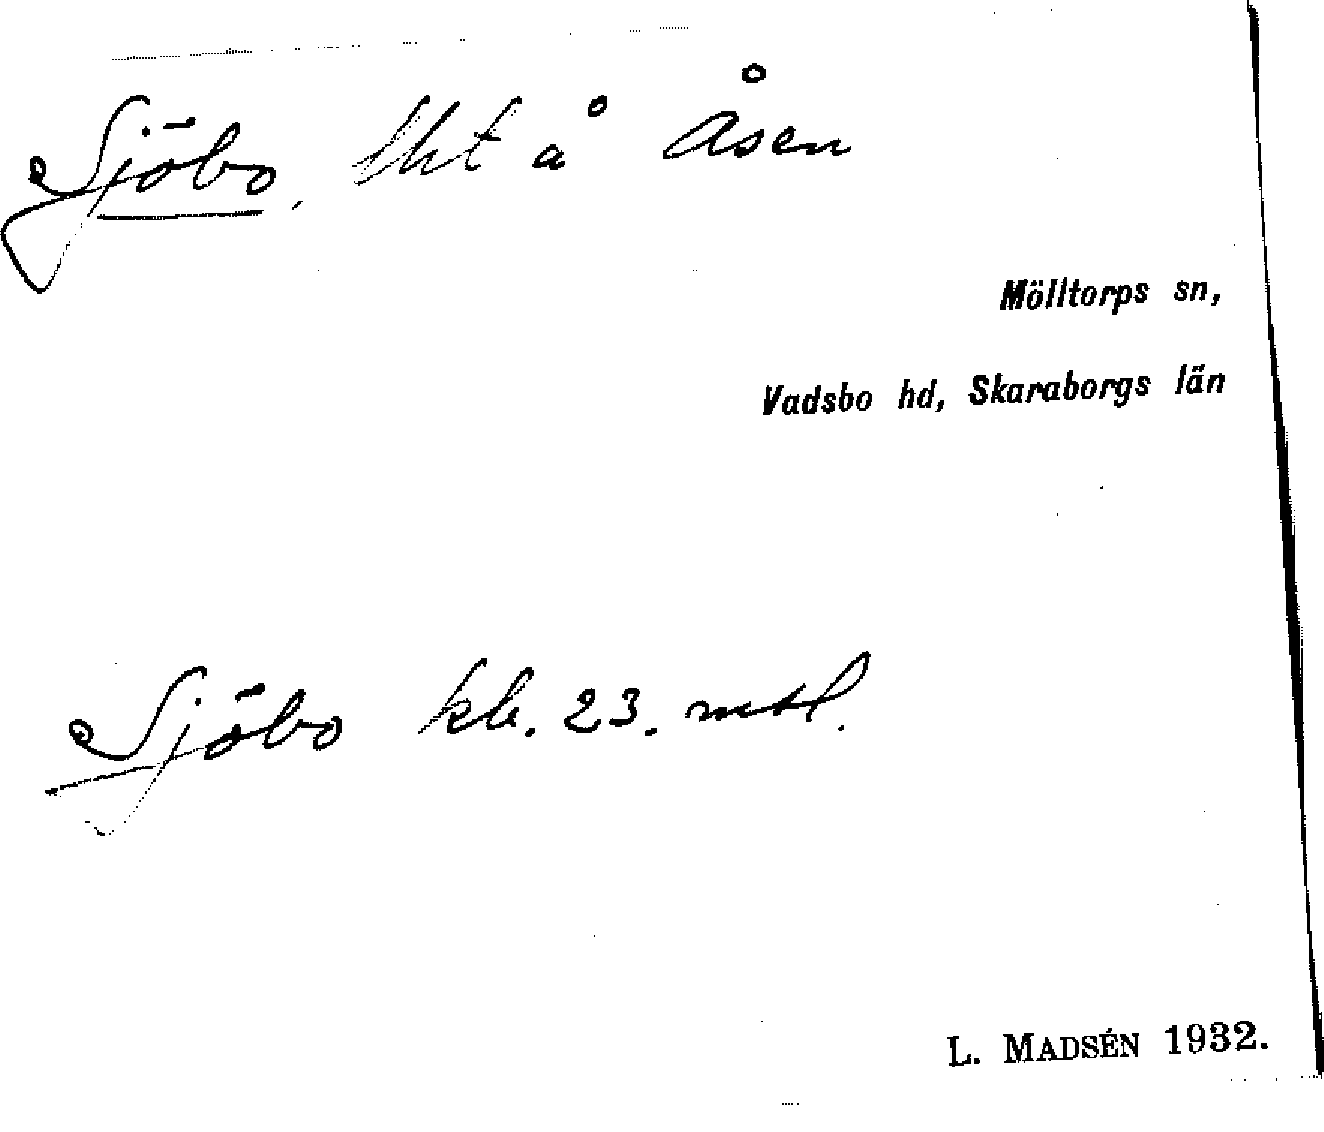 Sjöbo, lht å Åsen
Mölltorps sn,
Vadsbo hd, Skaraborgs län
Sjöbo kb. 23. mtl.
L. MADSÉN 1932.